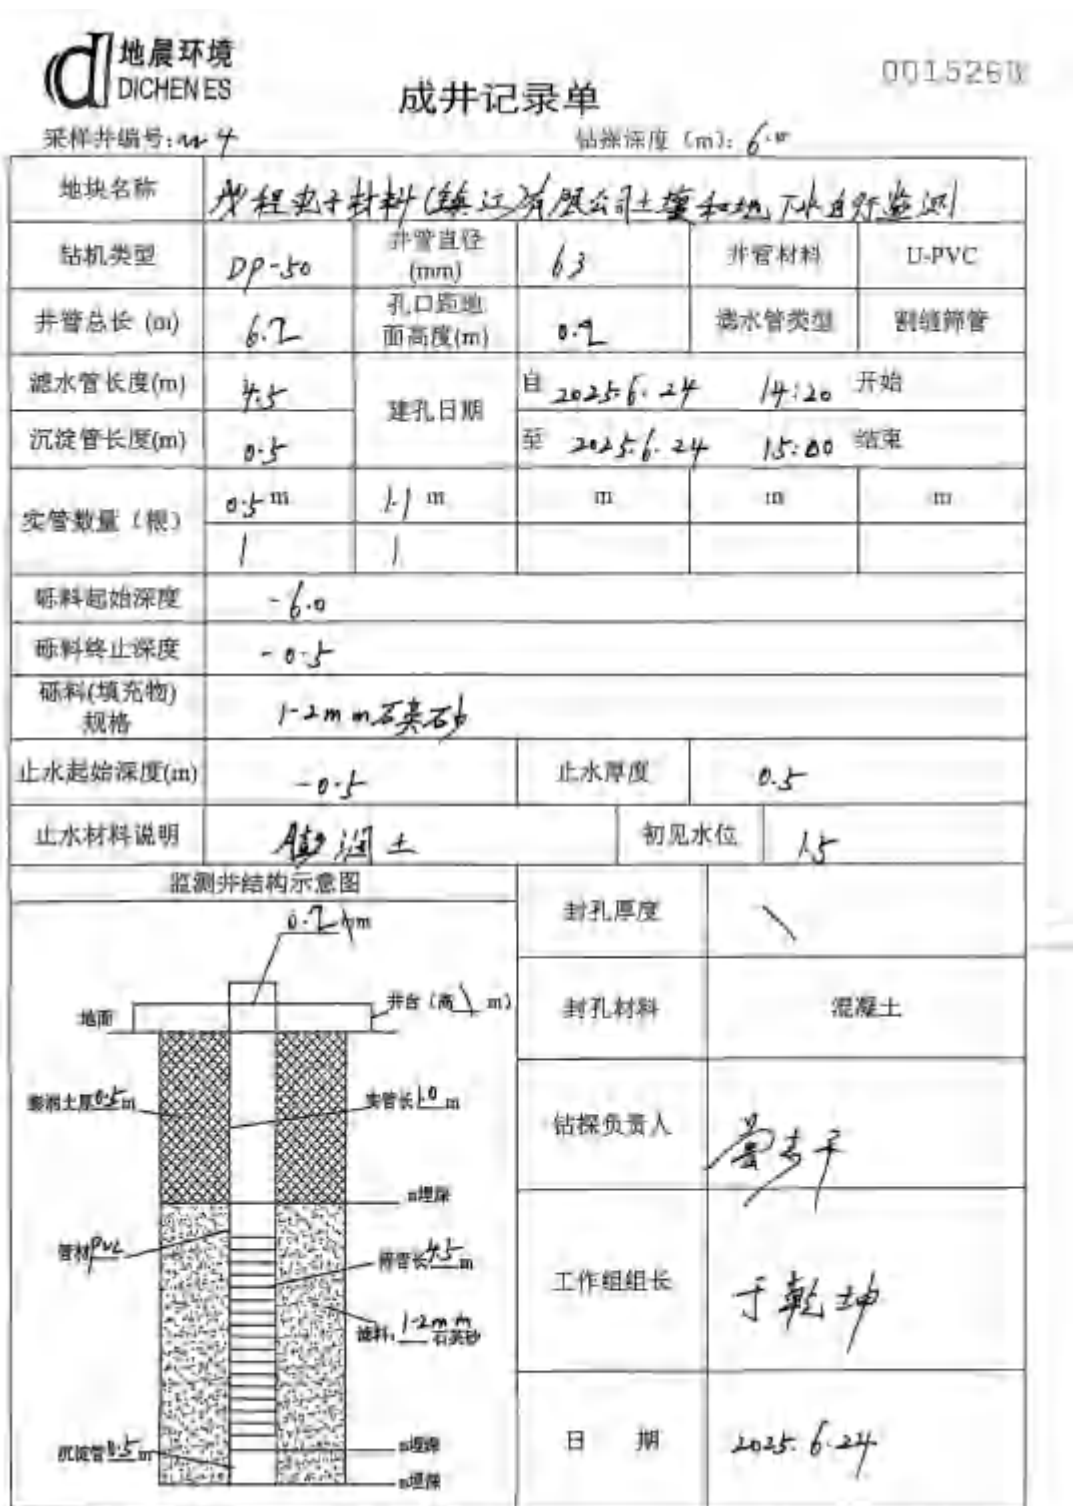 地晨环境
DICHEN ES
0015260
成井记录单
采样井编号: W4 钻探深度（m）: 6.0
地块名称 电子材料（镇江）有限公司土壤和地下水自行监测
钻机类型 DP-50 井管直径(mm) 63 井管材料 U-PVC
井管总长 (m) 6.2 孔口距地面高度(m) 0.2 滤水管类型 割缝筛管
滤水管长度(m) 4.5 建孔日期 自 2025.6.24 14:20 开始
沉淀管长度(m) 0.5 至 2025.6.24 15:00 结束
实管数量（根） 0.5 m 1.1 m m m m
1 1
砾料起始深度 -6.0
砾料终止深度 -0.5
砾料(填充物)规格 1-2mm石英砂
止水起始深度(m) -0.5 止水厚度 0.5
止水材料说明 膨润土 初见水位 1.5
监测井结构示意图
0.2 m
地面
井台（高 \ m）
膨润土厚0.5m
实管长1.0 m
m埋深
管材PVC
筛管长4.5 m
滤料: 1-2mm 石英砂
沉淀管0.5 m
m埋深
m埋深
封孔厚度 \
封孔材料 混凝土
钻探负责人
工作组组长 于乾坤
日 期 2025.6.24